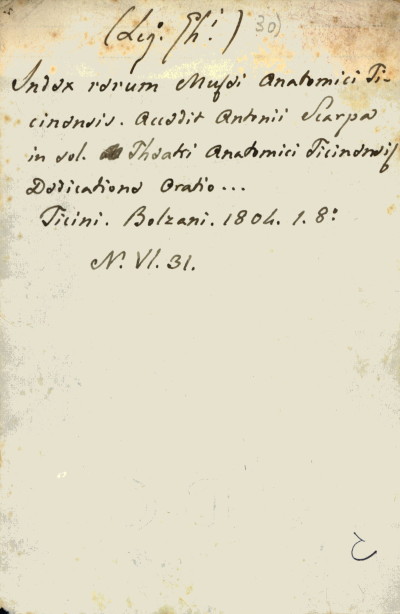 (Leg. Gh!) 30)
Index rerum Musei Anatomici Ti-
cinensis. Accedit Antonii Scarpa
in sol. Theatri Anatomici Ticinensis
Dedicatione Oratio...
Ticini. Bolzani. 1804. 1. 8:
N. VI. 31.